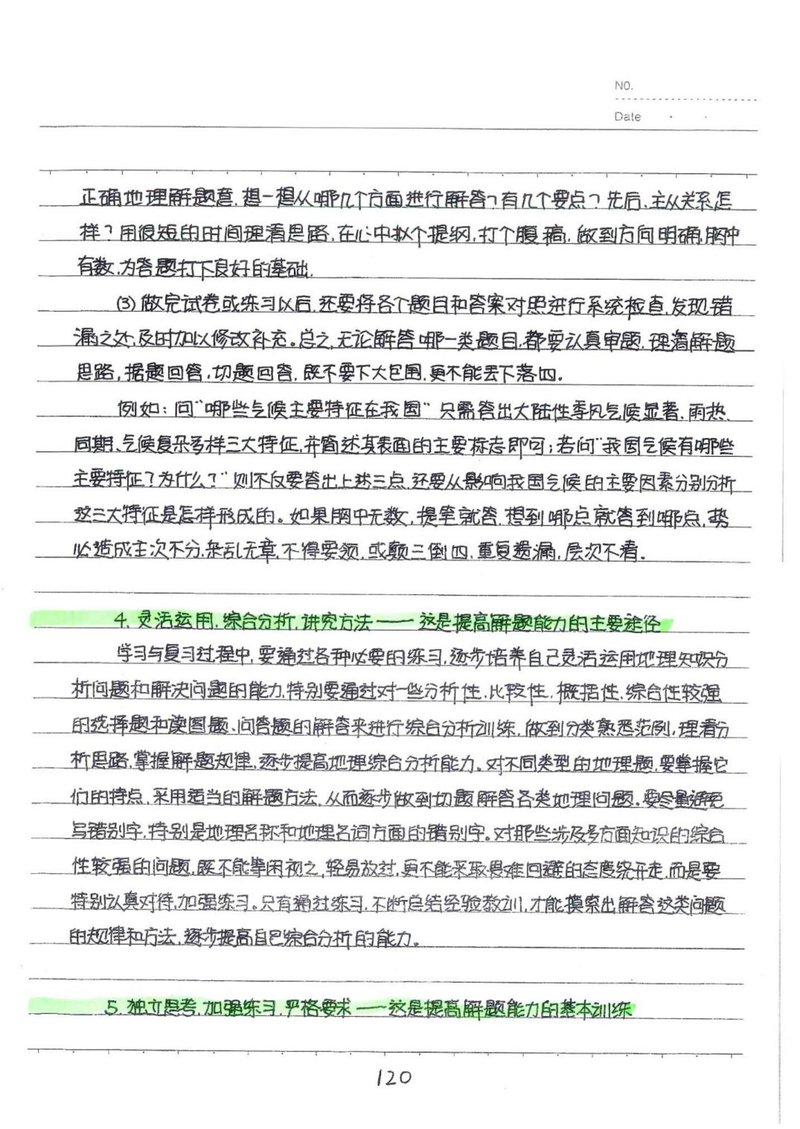 NO.
Date
正确地理解题意，想一想从哪几个方面进行解答？有几个要点？先后、主从关系怎
样？用很短的时间理清思路，在心中拟个提纲，打个腹稿，做到方向明确，胸中
有数，为答题打下良好的基础。
(3) 做完试卷或练习以后，还要将各个题目和答案对照进行系统检查，发现错
漏之处，及时加以修改补充。总之，无论解答哪一类题目，都要认真审题，理清解题
思路，据题回答，切题回答，既不要下大包围，更不能丢下落四。
例如：问“哪些气候主要特征在我国”只需答出大陆性季风气候显著、雨热、
同期、气候复杂多样三大特征，并简述其表面的主要标志即可；若问“我国气候有哪些
主要特征？为什么？”则不仅要答出上述三点，还要从影响我国气候的主要因素分别分析
这三大特征是怎样形成的。如果胸中无数，提笔就答，想到哪点就答到哪点，势
必造成主次不分，杂乱无章，不得要领，或颠三倒四，重复遗漏，层次不清。
4. 灵活运用，综合分析，讲究方法——这是提高解题能力的主要途径
学习与复习过程中，要通过各种必要的练习，逐步培养自己灵活运用地理知识分
析问题和解决问题的能力，特别要通过对一些分析性、比较性、概括性、综合性较强
的选择题和读图题、问答题的解答来进行综合分析训练，做到分类熟悉范例，理清分
析思路，掌握解题规律，逐步提高地理综合分析能力。对不同类型的地理题，要掌握它
们的特点，采用适当的解题方法，从而逐步做到切题解答各类地理问题。要尽量避免
写错别字，特别是地理名称和地理名词方面的错别字。对那些涉及多方面知识的综合
性较强的问题，既不能等闲视之，轻易放过，更不能采取畏难回避的态度绕开走，而是要
特别认真对待，加强练习。只有通过练习，不断总结经验教训，才能摸索出解答这类问题
的规律和方法，逐步提高自己综合分析的能力。
5. 独立思考，加强练习，严格要求——这是提高解题能力的基本训练
120